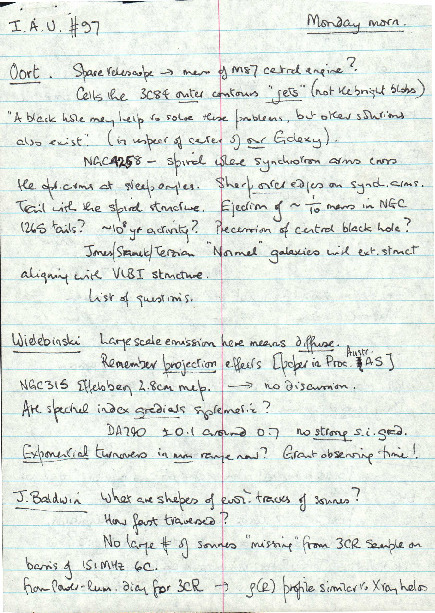 I.A.U. #97 Monday morn.
Oort. Space telescope → mass of M87 central engine?
Calls the 3C84 outer contours "jets" (not the bright blobs)
"A black hole may help to solve these problems, but other solutions
also exist" (in respect of center of our Galaxy).
NGC4258 – spiral where synchrotron arms cross
the opt. arms at steep angles. Sharp outer edges on synch. arms.
Tail with the spiral structure. Ejection of ~ 1/10 mass in NGC
1265 tails? ~10⁸ yr activity? Precession of central black hole?
Jones/Sramek/Terzian "Normal" galaxies with ext. struct
aligning with VLBI structure.
List of questions.
Wielebinski Large scale emission here means diffuse.
Remember projection effects [paper in Proc. Austr. AS]
NGC315 Effelsberg 2.8cm map. → no discussion.
Are spectral index gradients systematic?
DA240 ±0.1 around 0.7 no strong s.i. grad.
Exponential turnovers in mm range now? Grant observing time!
J. Baldwin What are shapes of evol. tracks of sources?
How fast traversed?
No large # of sources "missing" from 3CR sample on
basis of 151MHz 6C.
From Power-lum. diag for 3CR → ρ(r) profile similar to Xray halos